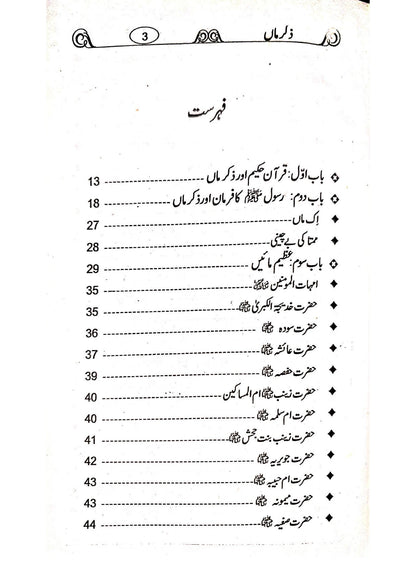 ذکر ماں 3
فہرست
باب اوّل: قرآن حکیم اور ذکر ماں 13
باب دوم: رسول ﷺ کا فرمان اور ذکر ماں 18
اِک ماں 27
ممتا کی بے چینی 28
باب سوم: عظیم مائیں 29
امہات المومنین 35
حضرت خدیجۃ الکبریٰ 35
حضرت سودہ 36
حضرت عائشہ 37
حضرت حفصہ 39
حضرت زینب ام المساکین 40
حضرت ام سلمہ 40
حضرت زینب بنت جحش 41
حضرت جویریہ 42
حضرت ام حبیبہ 43
حضرت میمونہ 43
حضرت صفیہ 44